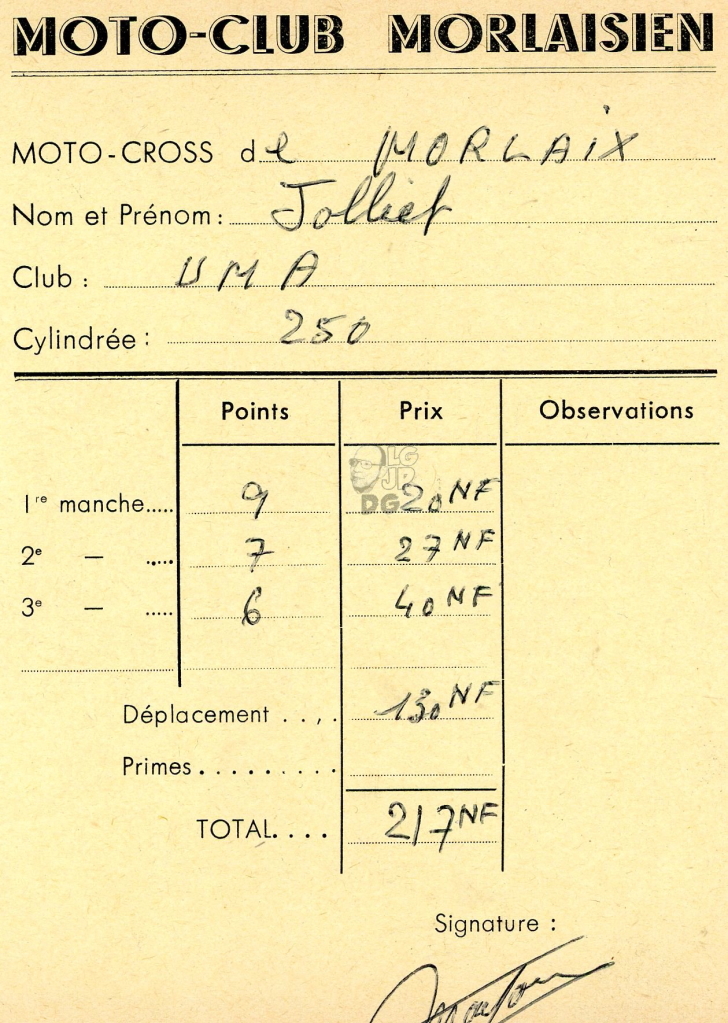 MOTO-CLUB MORLAISIEN
MOTO-CROSS de MORLAIX
Nom et Prénom : Jolliet
Club : UMA
Cylindrée : 250
Points Prix Observations
LG
JP
DG
1re manche..... 9 20 NF
2e — ..... 7 27 NF
3e — ..... 6 40 NF
Déplacement .... 130 NF
Primes.........
TOTAL.... 217 NF
Signature :